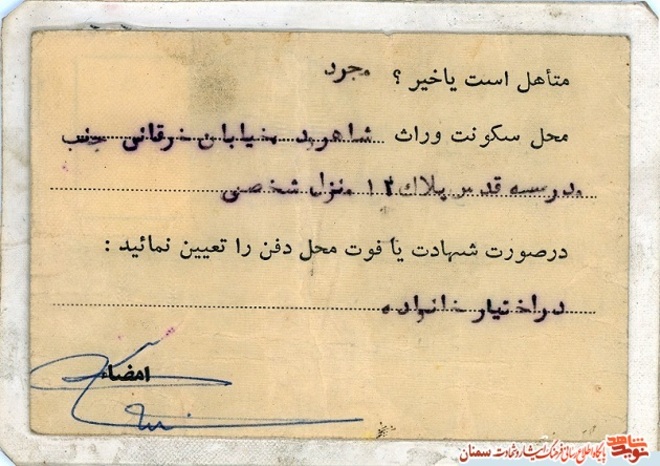 متأهل است یاخیر ؟ مجرد
محل سکونت وراث شاهرود خیابان خرقانی جنب
مدرسه قدس پلاک ۱۲ منزل شخصی
درصورت شهادت یا فوت محل دفن را تعیین نمائید :
در اختیار خانواده
امضاء
نوید شاهد پایگاه اطلاع رسانی فرهنگ ایثار و شهادت سمنان